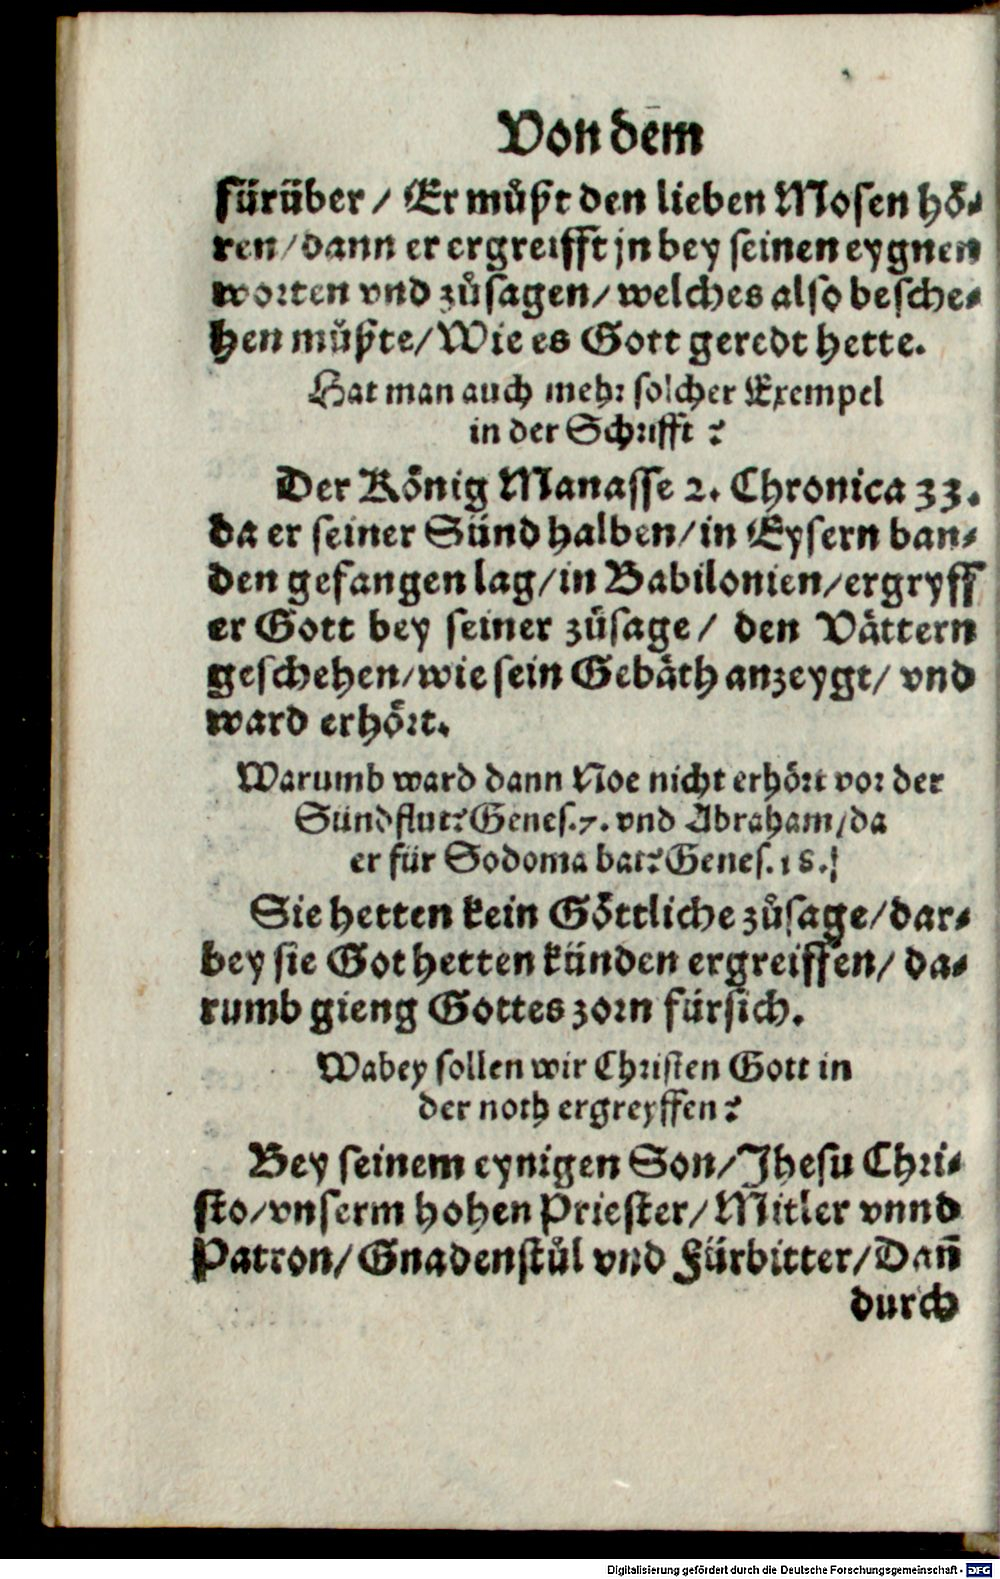 Von dem
fürüber / Er můßt den lieben Mosen hö⸗
ren / dann er ergreifft jn bey seinen eygnen
worten vnd zůsagen / welches also besche⸗
hen můßte / Wie es Gott geredt hette.
Hat man auch mehr solcher Exempel
in der Schrifft?
Der König Manasse 2. Chronica 33.
da er seiner Sünd halben / in Eysern ban⸗
den gefangen lag / in Babilonien / ergryff
er Gott bey seiner zůsage / den Vättern
geschehen / wie sein Gebäth anzeygt / vnd
ward erhört.
Warumb ward dann Noe nicht erhört vor der
Sündflut? Genes. 7. vnd Abraham / da
er für Sodoma bat? Genes. 18.
Sie hetten kein Göttliche zůsage / dar⸗
bey sie Got hetten künden ergreiffen / da⸗
rumb gieng Gottes zorn fürsich.
Wabey sollen wir Christen Gott in
der noth ergreyffen?
Bey seinem eynigen Son / Jhesu Chri⸗
sto / vnserm hohen Priester / Mitler vnnd
Patron / Gnadenstůl vnd Fürbitter / Dañ
durch
Digitalisierung gefördert durch die Deutsche Forschungsgemeinschaft - DFG